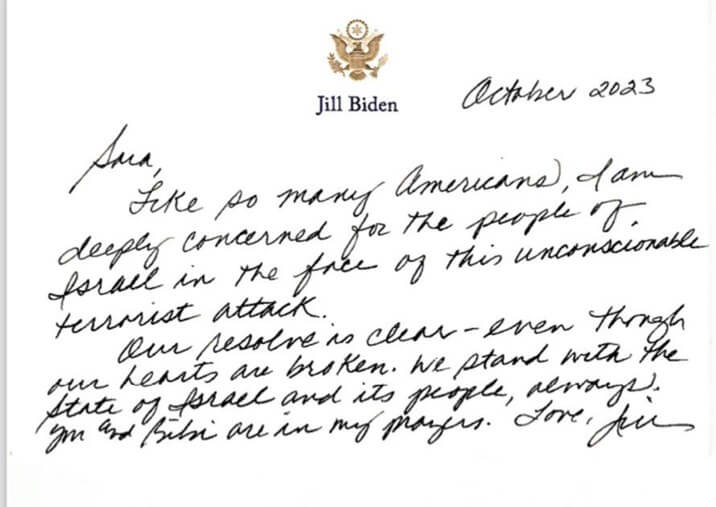 Jill Biden
October 2023
Sara,
Like so many Americans, I am
deeply concerned for the people of
Israel in the face of this unconscionable
terrorist attack.
Our resolve is clear - even though
our hearts are broken. We stand with the
State of Israel and its people, always.
You and Bibi are in my prayers. Love, Jill